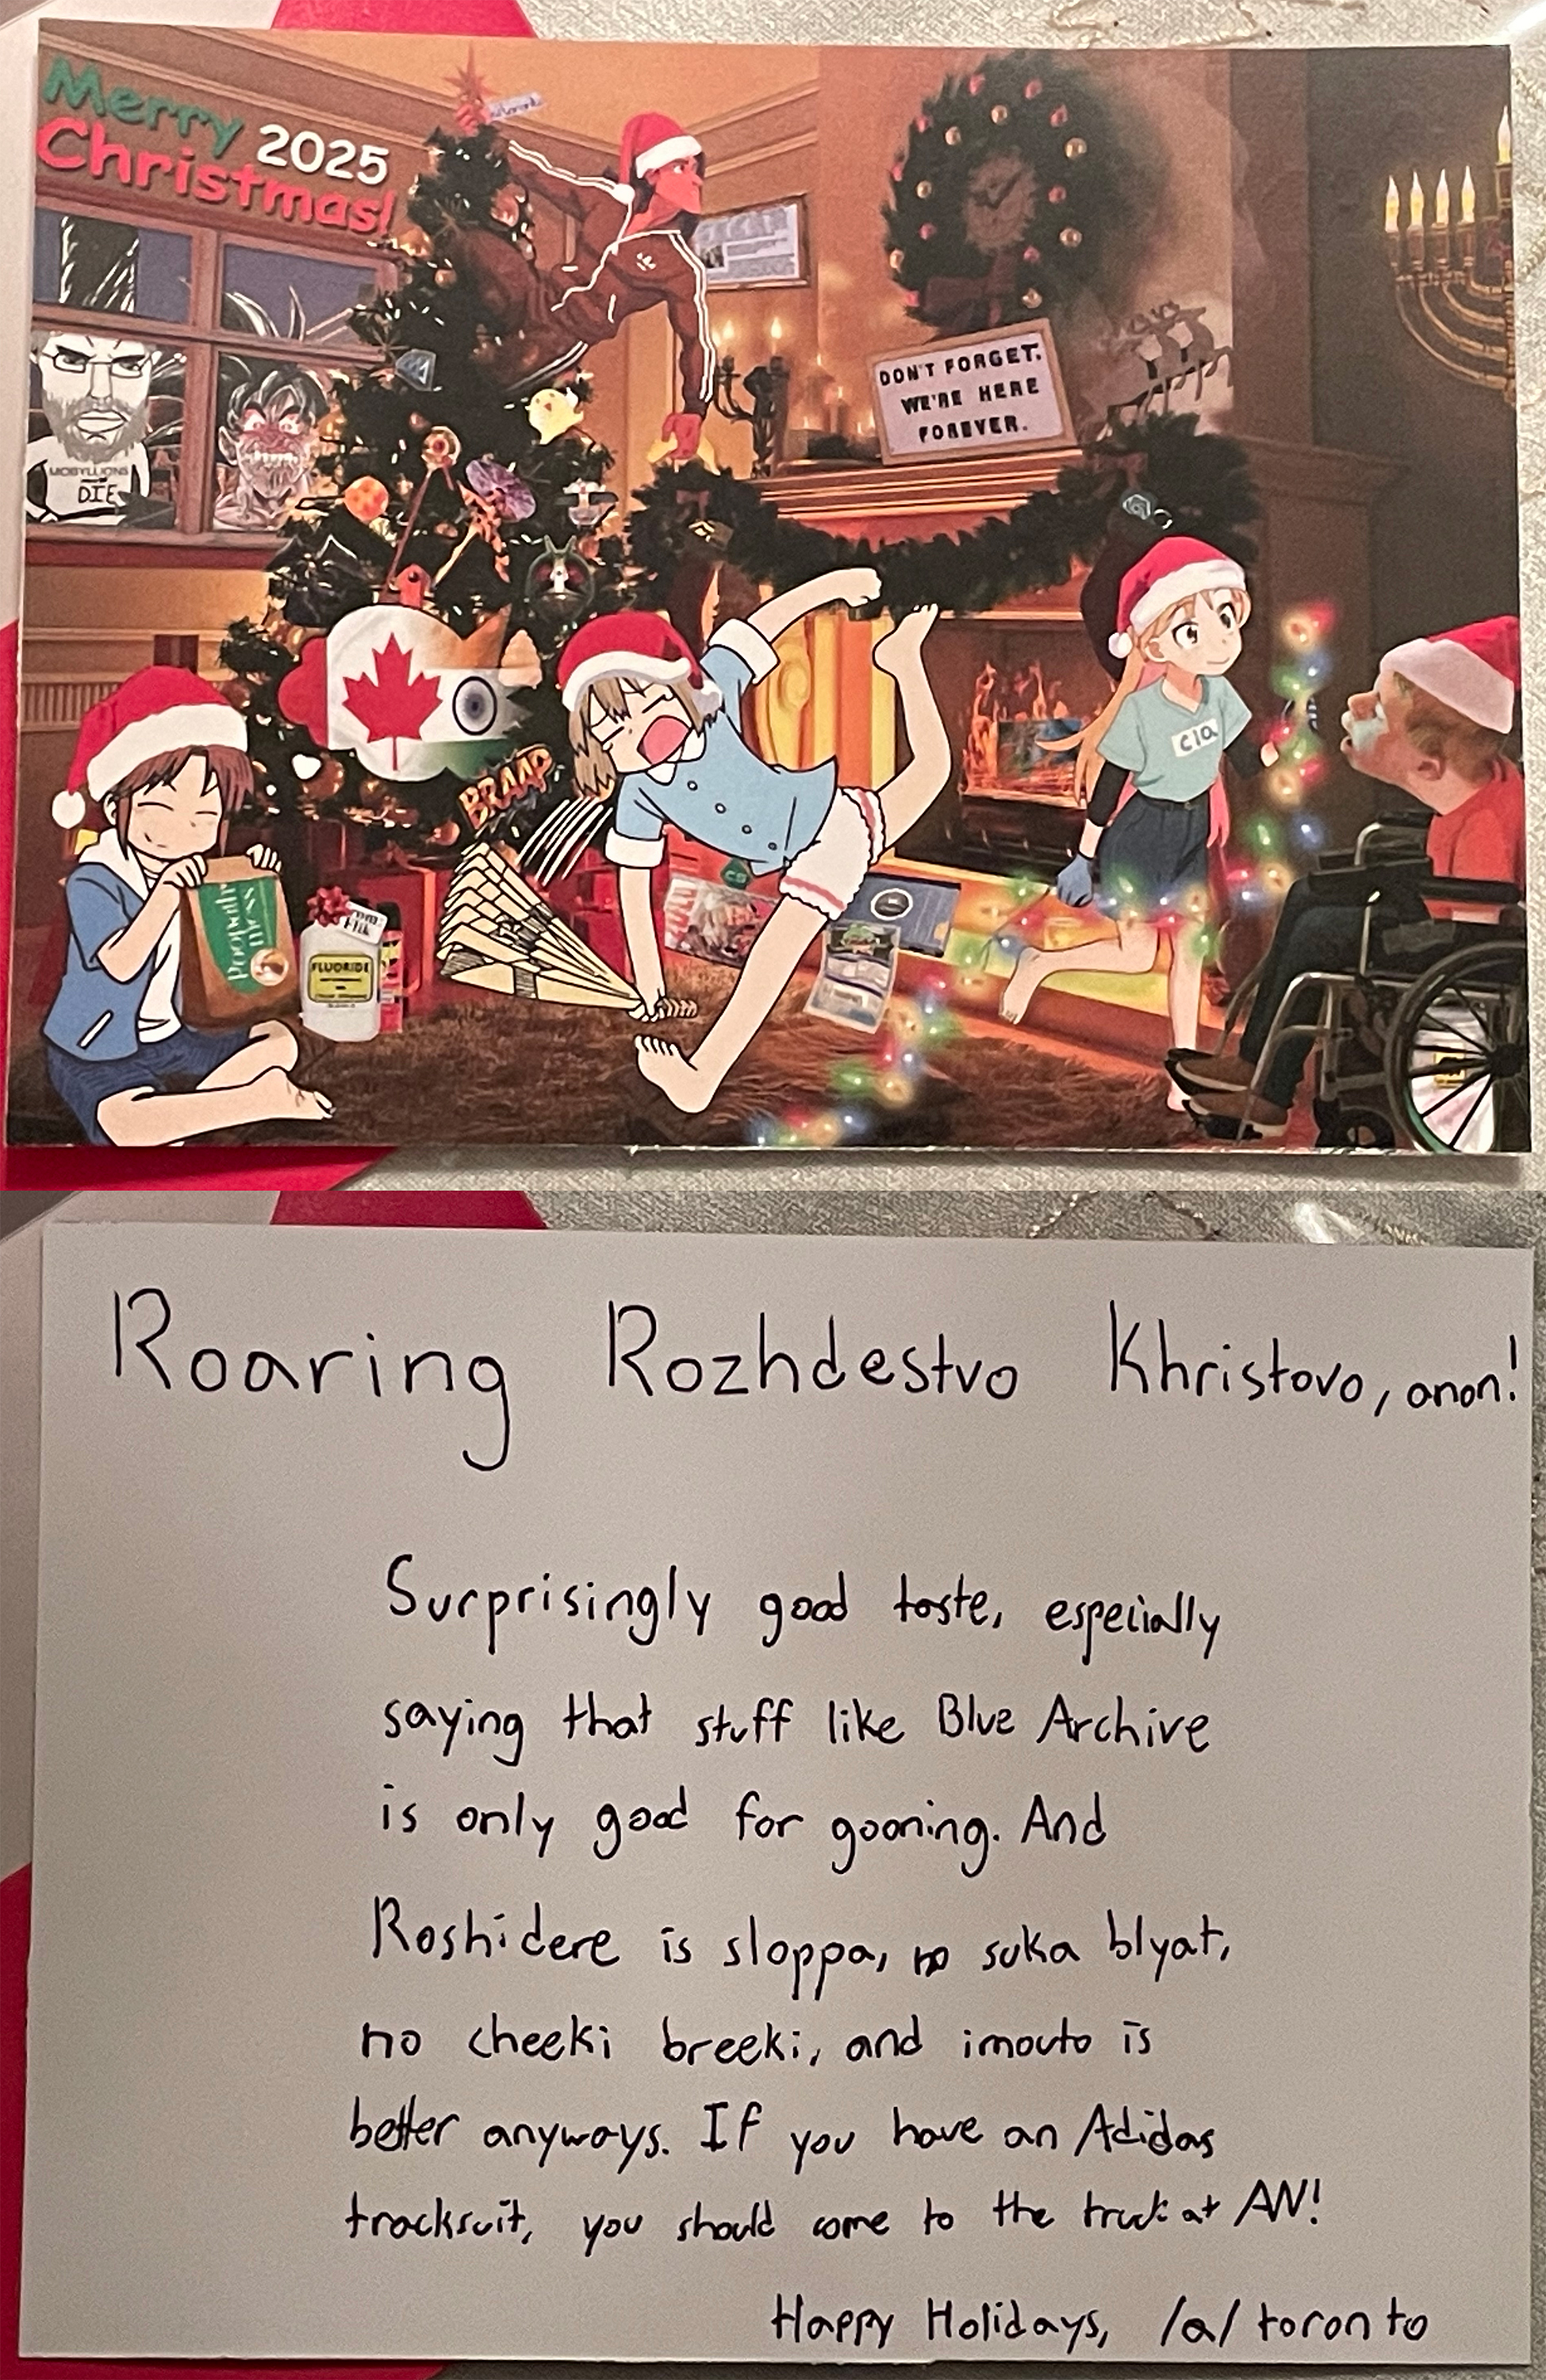 Merry 2025
Christmas!
DON'T FORGET.
WE'RE HERE
FOREVER.
DIE
cia
BRAAP
FLUORIDE
Roaring Rozhdestvo Khristovo, anon!
Surprisingly good taste, especially
saying that stuff like Blue Archive
is only good for gooning. And
Roshidere is sloppa, no suka blyat,
no cheeki breeki, and imouto is
better anyways. If you have an Adidas
tracksuit, you should come to the truck at AN!
Happy Holidays, /a/ toronto